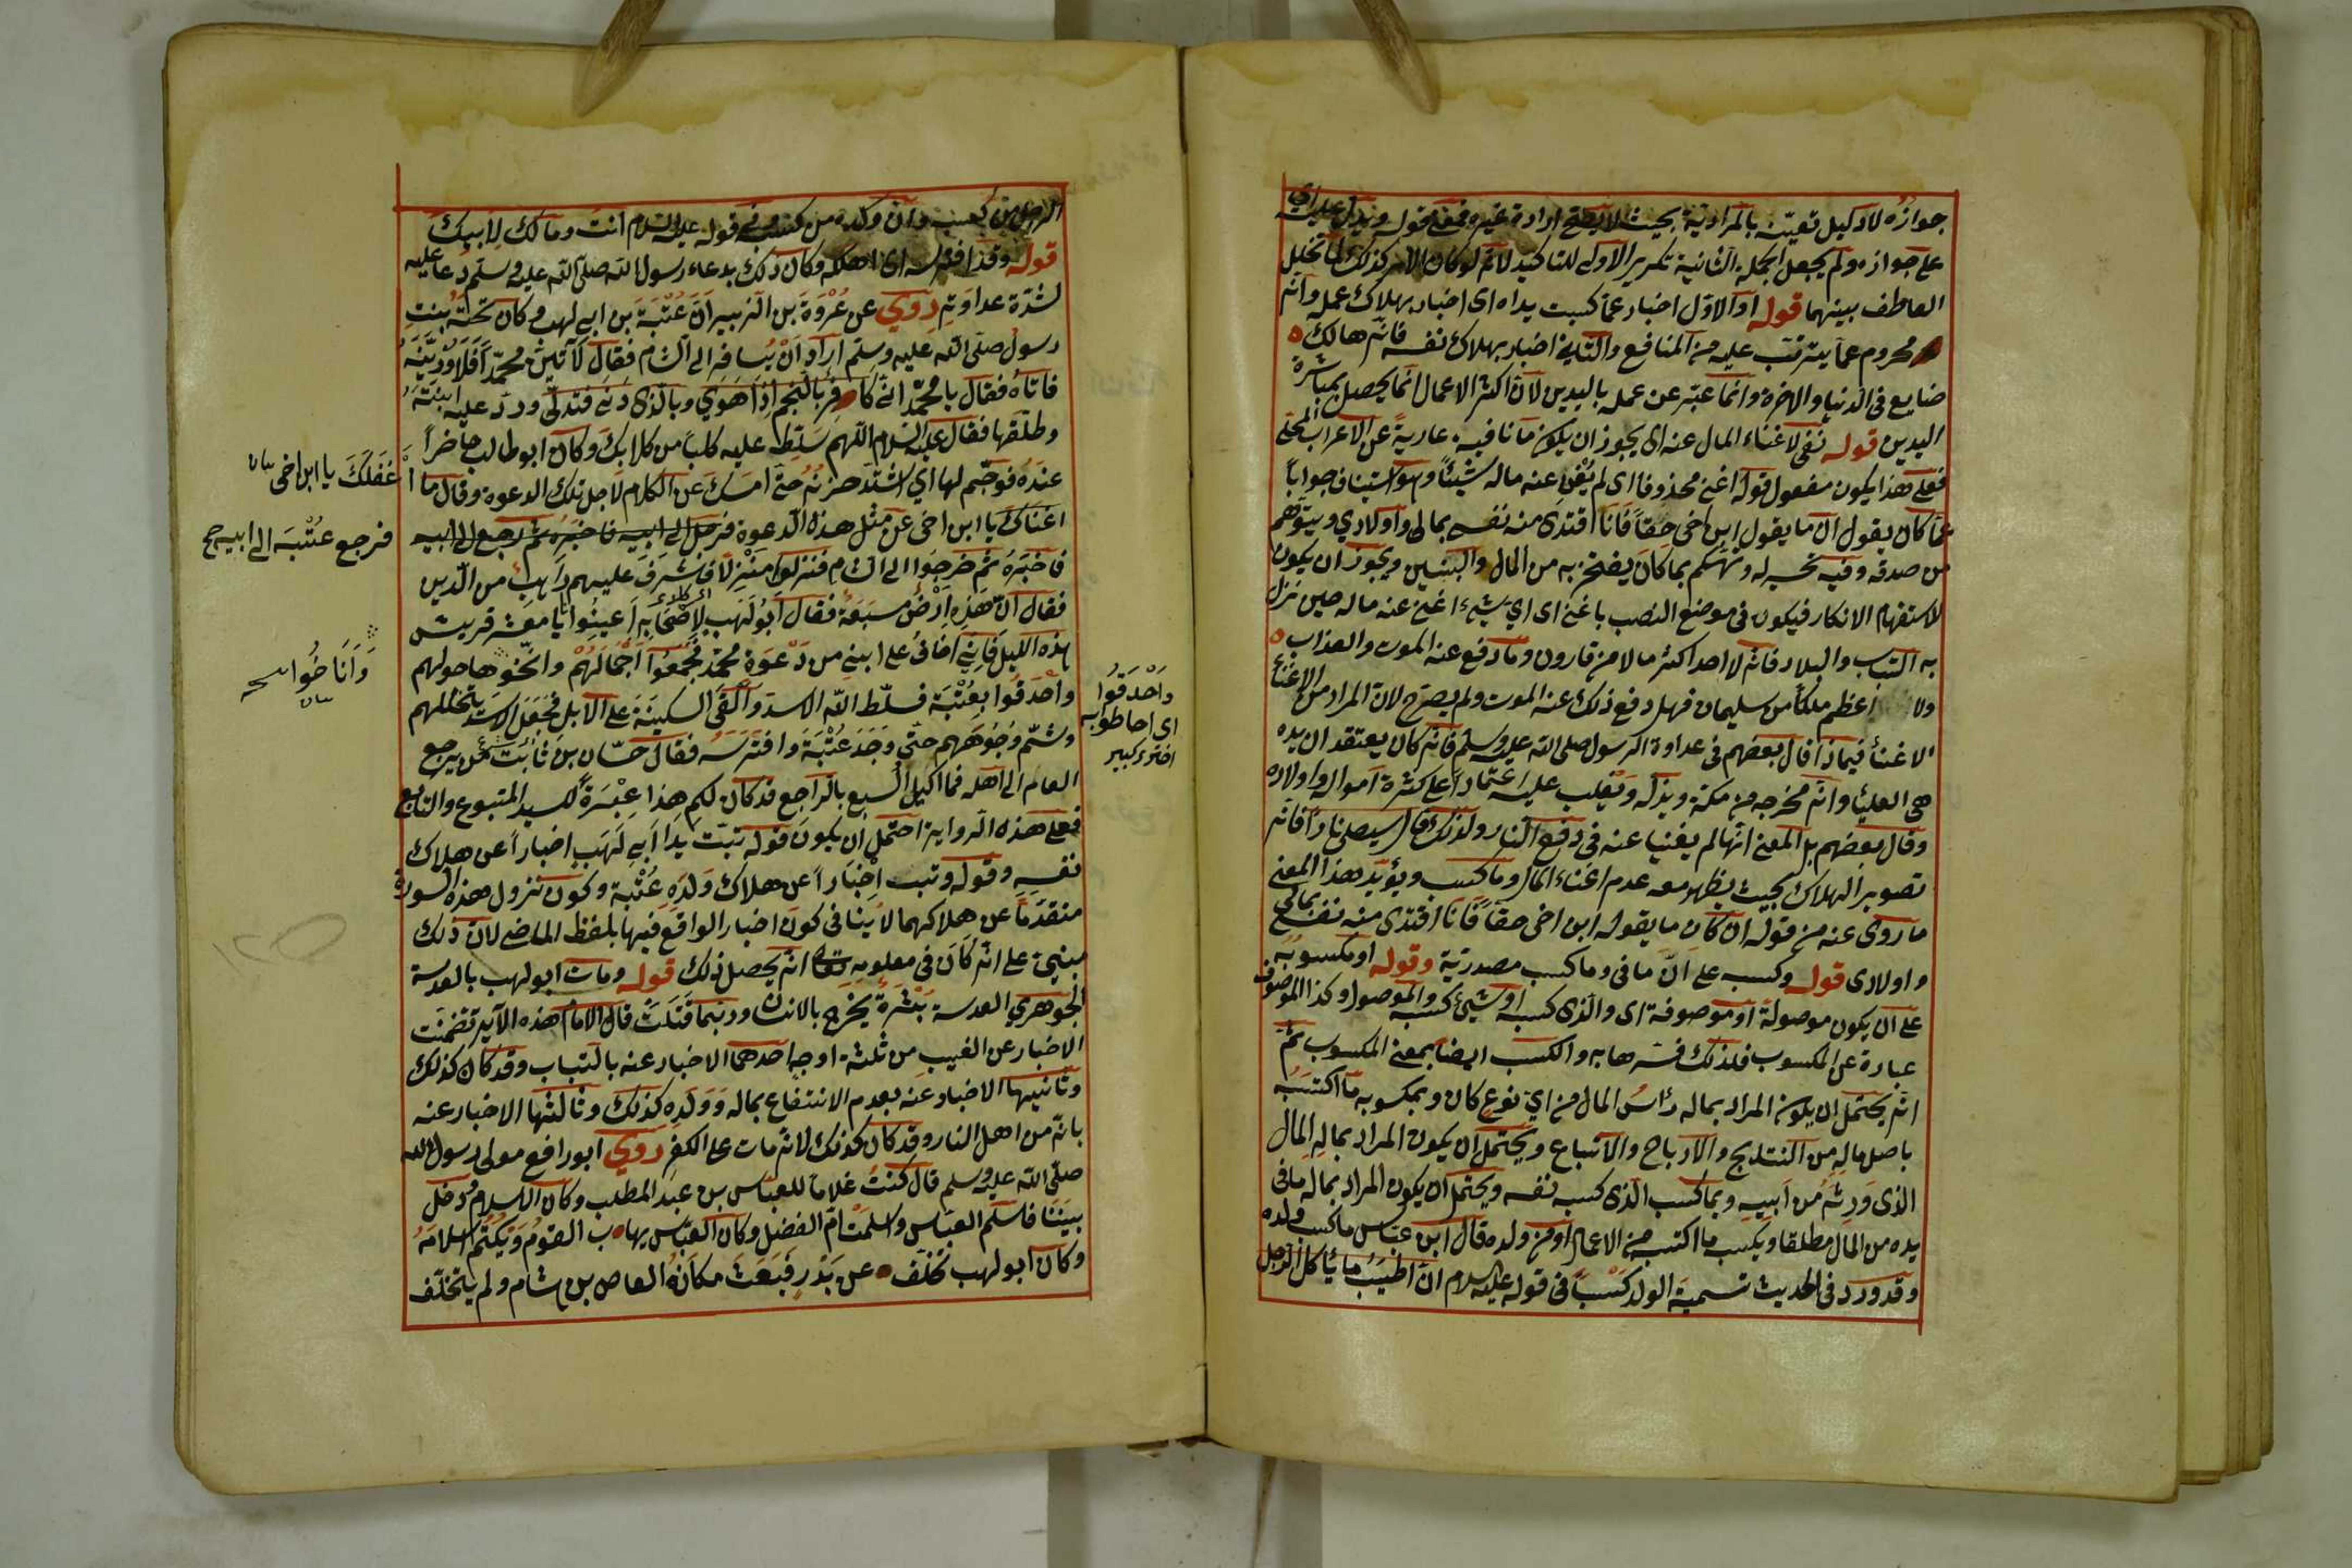 جوازه لا دليل تعينه بالمرادية بحيث لا يصح ارادة غيره فمعنى قوله ويدل عليه اى
على جوازه ولم يجعل الجملة الثانية تكرير الاولى للتاكيد لانه لو كان الامر كذلك لما تخلل
العاطف بينهما قوله او الاول اخبار عما كسبت يداه اى اخبار بهلاك عمله وانه
محروم عما يترتب عليه من المنافع والثانى اخبار بهلاك نفسه فانه هالك
ضايع فى الدنيا والاخرة وانما عبر عن عمله باليدين لان اكثر الاعمال انما يحصل بمباشرة
اليدين قوله نفى لاغناء المال عنه اى يجوز ان يكون ما نافية عارية عن الاعراب المحلى
فعلى هذا يكون مفعول قوله اغنى محذوفا اى لم يُغْنِ عنه ماله شيئاً وهو استيناف جواباً
عما كان يقول ان ما يقول ابن اخى حقاً فانا افتدى منه نفسى بمالى واولادي ويتوهم
من صدقه وفيه تحسير له وتهكم بما كان يفتخر به من المال والبنين ويجوز ان يكون
لاستفهام الانكار فيكون فى موضع النصب باغنى اى اي شيء اغنى عنه ماله حين نزل
به التباب والبلاد فانه لا احد اكثر مالا من قارون وما دفع عنه الموت والعذاب
ولا اعظم ملكاً من سليمان فهل دفع ذلك عنه الموت ولم يصرح لان المراد من الاغناء
الاغناء فيماذا قال بعضهم فى عداوة الرسول صلى الله عليه وسلم فانه كان يعتقد ان يده
هى العليا وانه مخرجه من مكة ويذله ويغلب عليه اعتماداً على كثرة امواله واولاده
وقال بعضهم بل المعنى انها لم يغنيا عنه فى دفع النار ولذلك قال سيصلى ناراً فانه
تصوير الهلاك بحيث يظهر معه عدم اغناء المال وما كسب ويؤيد هذا المعنى
ما روى عنه من قوله ان كان ما يقوله ابن اخى حقاً فانا افتدى منه نفسى بمالى
واولادى قوله وكسب على ان ما فى وما كسب مصدرية وقوله او مكسوبه
على ان يكون موصولة او موصوفة اى والذى كسب او شيئ كسبه والموصول وكذا الموصوف
عبارة عن المكسوب فلذلك فسرها به والكسب ايضا بمعنى المكسوب ثم
انه يحتمل ان يكون المراد بماله رأسُ المال من اي نوع كان وبمكسوبه ما اكتسبه
باصل ماله من النتايج والارباح والاتباع ويحتمل ان يكون المراد بماله المال
الذى ورثه من ابيه وبما كسب الذى كسب نفسه ويحتمل ان يكون المراد بماله ما فى
يده من المال مطلقا وبكسب ما اكتسب من الاعمال او من ولده قال ابن عباس ما كسب ولده
وقد ورد فى الحديث تسمية الولد كسباً فى قوله عليه السلام ان اطيب ما يأكل الرجل
الرجل من كسبه وان ولده من كسبه وفى قوله عليه السلام انت ومالك لابيك
قوله وقد افترسه اى اهلكه وكان ذلك بدعاء رسول الله صلى الله عليه وسلم دعا عليه
لشدة عداوته روي عن عُرْوَة بن الزبير ان عُتْبَة بن ابى لهب وكان تحته بنت
رسول صلى الله عليه وسلم اراد ان يسافر الى الشام فقال لآتين محمداً فلاوذينه
فاتاه فقال يا محمد انى كافر بالنجم اذا هوي وبالذى دنى فتدلى ورد عليه ابنته
وطلقها فقال عليه السلام اللهم سلط عليه كلباً من كلابك وكان ابو طالب حاضراً
عنده فوجم لها اي اشتد حزنه حتى امسك عن الكلام لاجل تلك الدعوة وقال ما
اغناك يا ابن اخى عن مثل هذه الدعوة فرجع الى ابيه فاخبره ثم رجع الى ابيه
فاخبره ثم خرجوا الى الشام فنزلوا منزلا فاشرف عليهم راهب من الدير
فقال ان هذه ارض مسبعة فقال ابو لهب لاصحابه اعينوا يا معشر قريش
هذه الليل فانى اخاف على ابنى من دعوة محمد فجمعوا اجمالهم واناخوها حولهم
واحدقوا بعتبة فسلط الله الاسد والقى السكينة على الابل فجعل الاسد يتخللهم
وشم وجوههم حتى وجد عتبة وافترسه فقال حسان بن ثابت من يرجع
العام الى اهله فما اكيل السبع بالراجع قد كان لكم هذا عبرة للسيد المتبوع والتابع
فعلى هذه الرواية احتمل ان يكون قوله تبت يدا ابى لهب اخباراً عن هلاك
نفسه وقوله وتب اخباراً عن هلاك ولده عتبة وكون نزول هذه السورة
متقدماً عن هلاكهما لا ينافى كون اخبار الواقع فيها بلفظ الماضى لان ذلك
مبنى على انه كان فى معلومه تعالى انه يحصل ذلك قوله ومات ابو لهب بالعدسة
الجوهري العدسة بثرة يخرج بالانسان وربما قتلت قال الامام هذه الآية تضمنت
الاخبار عن الغيب من ثلثة اوجه احدهما الاخبار عنه بالتباب وقد كان كذلك
وثانيها الاخبار عنه بعدم الانتفاع بماله وولده كذلك وثالثها الاخبار عنه
بانه من اهل النار وقد كان كذلك لانه مات على الكفر روي ابو رافع مولى رسول الله
صلى الله عليه وسلم قال كنت غلاما للعباس بن عبد المطلب وكان الاسلام دخل
بيتنا فاسلم العباس واسلمت ام الفضل وكان العباس يهاب القوم ويكتم اسلامه
وكان ابو لهب تخلف عن بدر فبعث مكانه العاص بن هشام ولم يتخلف
اغفلك يا ابن اخى
فرجع عتبة الى ابيه
واناخوا
واحدقوا
اى احاطوا به